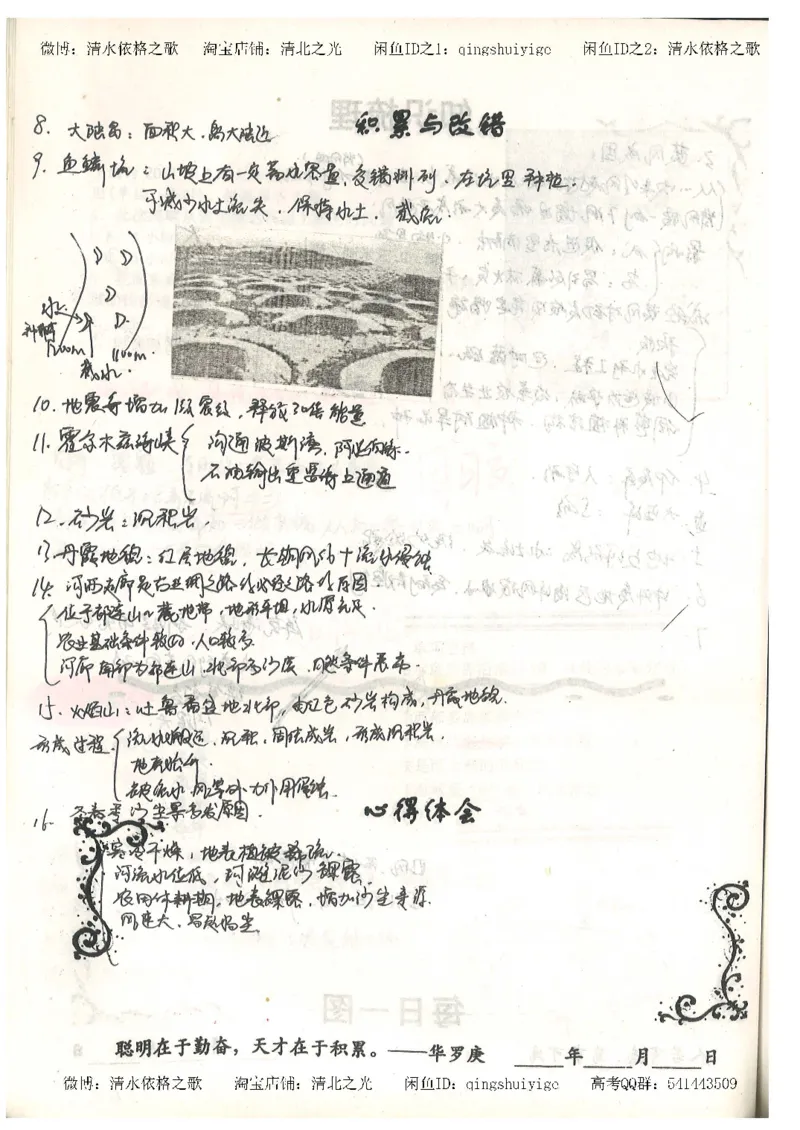 微博：清水依格之歌 淘宝店铺：清北之光 闲鱼ID之1：qingshuiyige 闲鱼ID之2：清水依格之歌
积累与改错
8. 大陆岛：面积大，离大陆近
9. 鱼鳞坑：山坡上有一定蓄水容量，交错排列，在坑里种植：
于减少水土流失，保持水土，截流
水
种树
1200m 1100m
截水
10. 地震每增加1级震级，释放30倍能量
11. 霍尔木兹海峡 沟通波斯湾，阿拉伯海
石油输出重要海上通道
12. 砂岩：沉积岩
13. 丹霞地貌：红层地貌，长期风化+流水侵蚀
14. 河西走廊是古丝绸之路必经之路的原因
位于祁连山山麓地带，地形平坦，水源充足
农业基础条件较好，人口较多
河廊南部为祁连山，北部为沙漠，自然条件恶劣
15. 火焰山：吐鲁番盆地北部，由红色砂岩构成，丹霞地貌
形成过程 流水搬运，沉积，固结成岩，形成沉积岩
地壳抬升
受流水风等外力作用侵蚀
16. 冬春季沙尘暴多发原因
心得体会
寒冷干燥，地表植被稀疏
河流水位低，河滩泥沙裸露
农田休耕期，地表裸露，增加沙尘来源
风速大，易起扬尘
聪明在于勤奋，天才在于积累。——华罗庚 ____年____月____日
微博：清水依格之歌 淘宝店铺：清北之光 闲鱼ID：qingshuiyige 高考QQ群：541443509